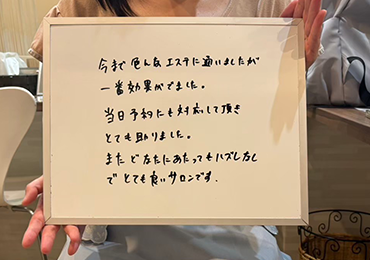 今まで色んなエステに通いましたが
一番効果がでました。
当日予約にも対応して頂き
とても助りました。
また どなたにあたってもハズレなし
で とても良いサロンです.